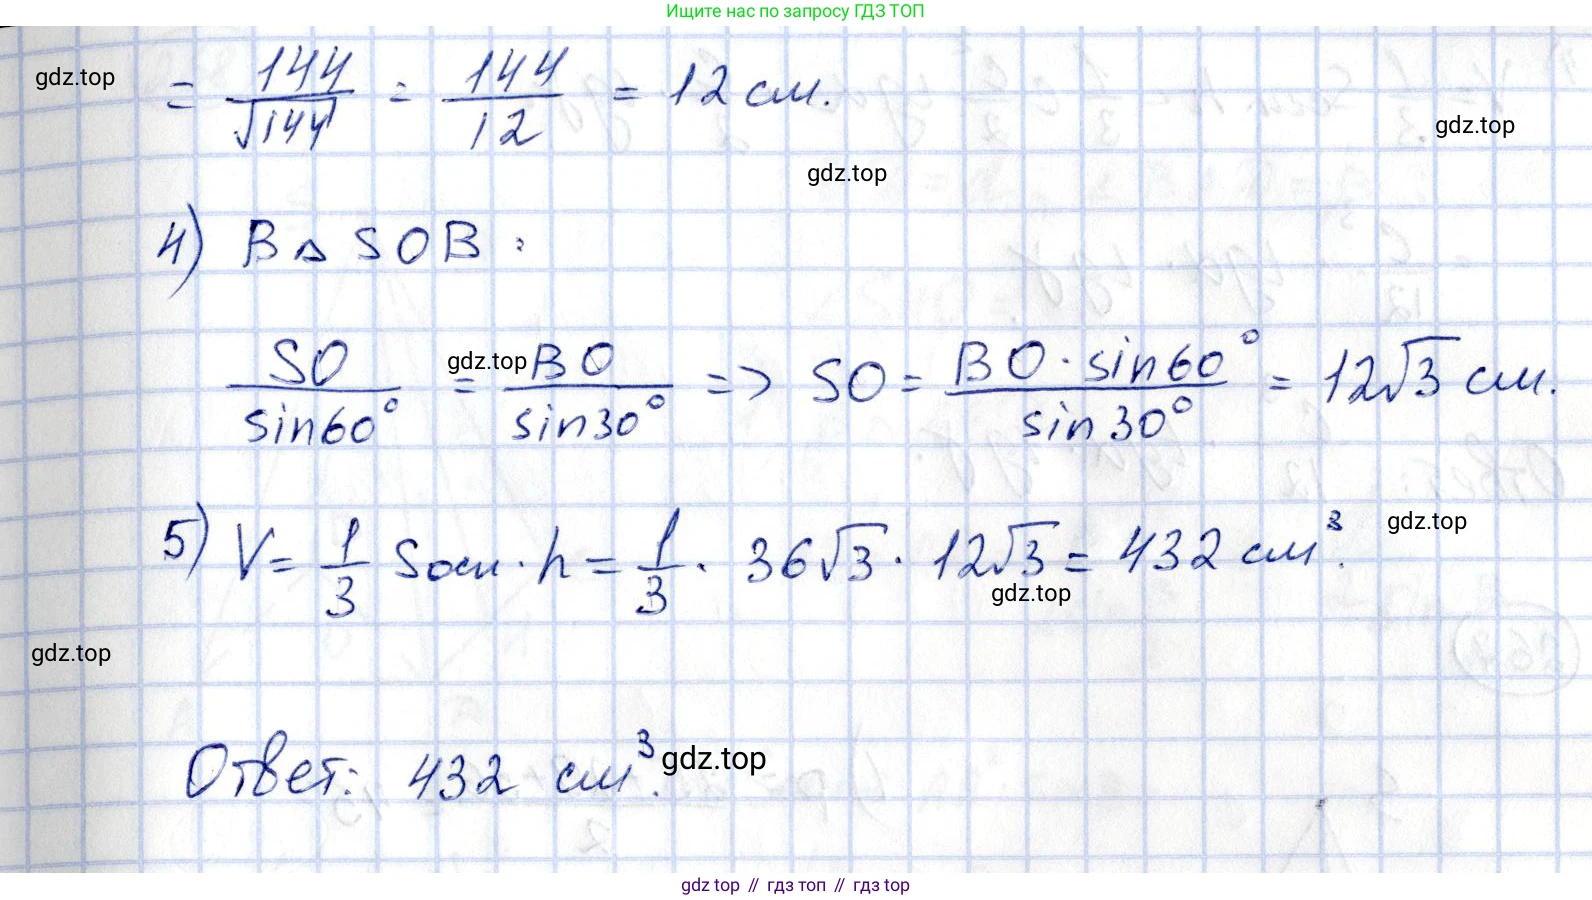 Ищите нас по запросу ГДЗ ТОП
= 144/√144 = 144/12 = 12 см.
gdz.top
gdz.top
gdz.top
4) В △ SOB:
SO/sin60° = BO/sin30° => SO = BO · sin60°/sin30° = 12√3 см.
gdz.top
5) V = 1/3 Sосн · h = 1/3 · 36√3 · 12√3 = 432 см³.
gdz.top
gdz.top
gdz.top
Ответ: 432 см³.
gdz.top
gdz top // гдз топ // gdz top